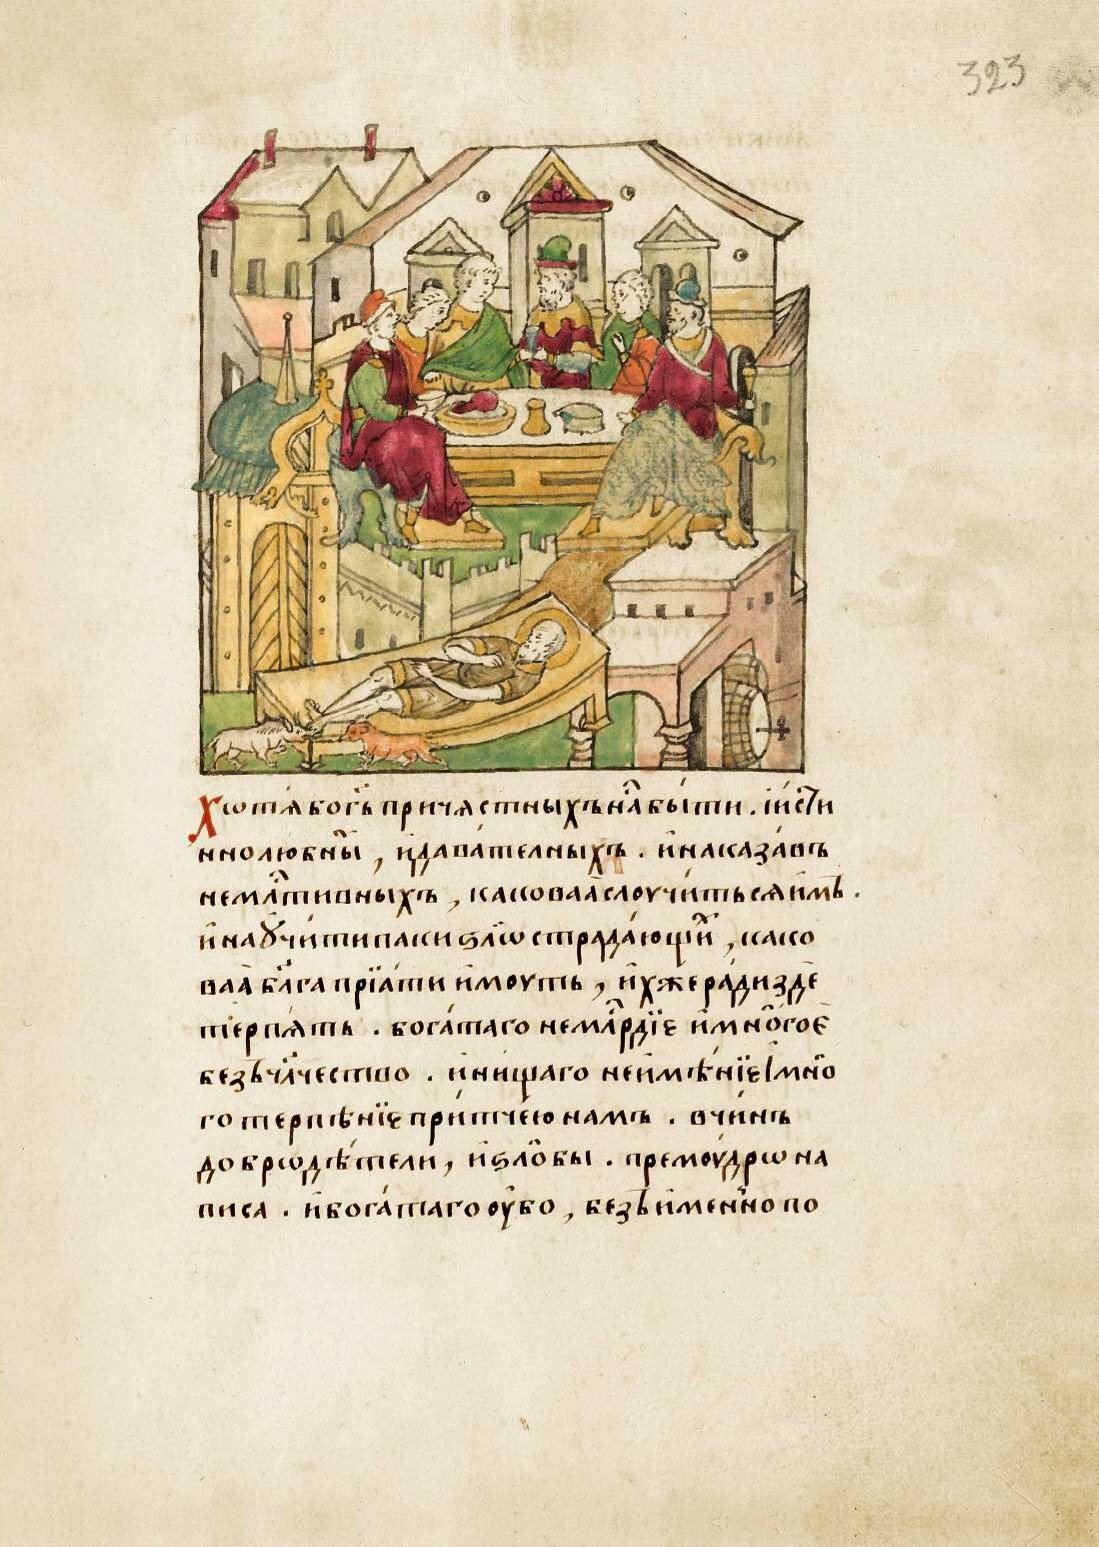 323
Хѡтѧ́ бог҃ъ причѧстныхъ на́ бы́ти . и҆ и҆́сти
ннолюбны́ , и҆ дава́телныхъ . и҆ наказа́въ
немл҃тивныхъ , какова́ѧ слоучи́тьсѧ и҆́мъ .
и҆ наꙋчи́ти паки ѕлѡ̀ стра́да́ющи́ , како
ва́ѧ бл҃га̀ прїѧ́ти и҆́моуть , и҆́хже ра́ди здѐ
те́рпѧ́ть . бога́таго немл҃рдїе и҆ мно́гое
безъчл҃чество . и҆ ни́щаго неи҆мѣ́нїе и҆ мно́
го терпѣ́нїе при́тчею намъ . в чи́нъ
добрѡдѣ́тели , и҆ ѕло́бы . премоу́дрѡ на
писа . и҆ бога́таго оу҆́бо , безъи́менно по